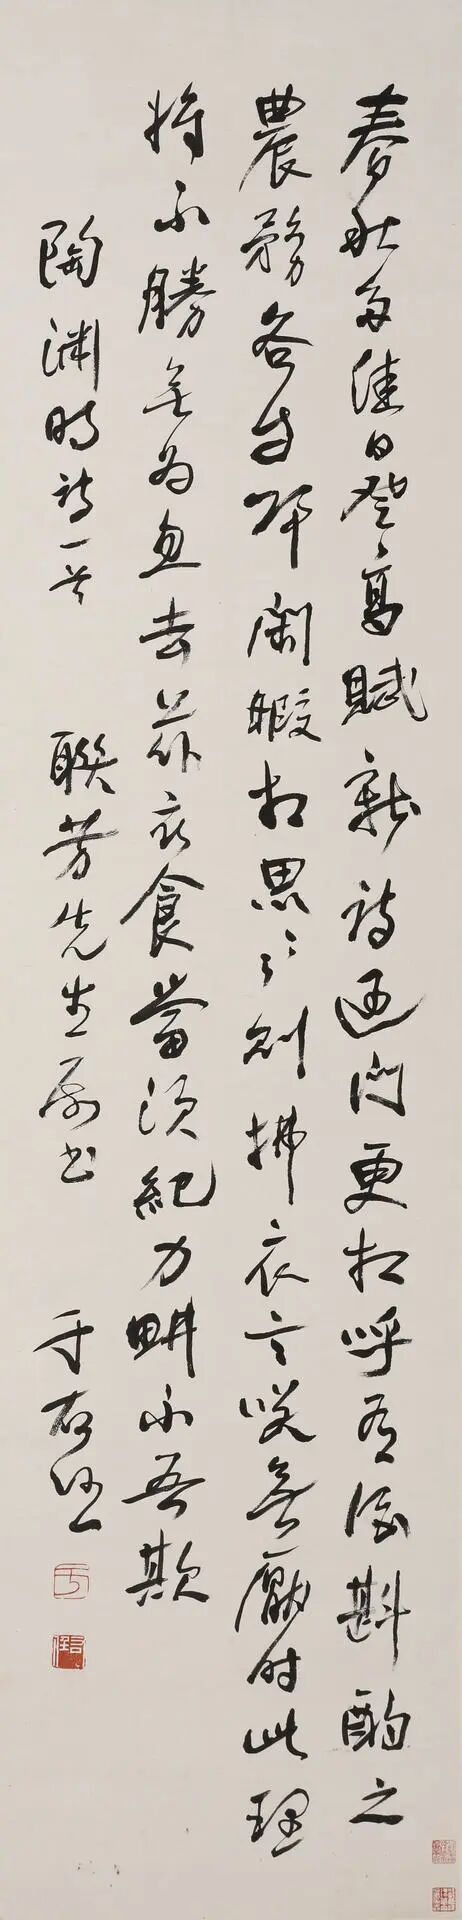 春秋多佳日登高賦新詩過門更相呼有酒斟酌之
農務各自歸閑暇相思思則披衣言笑無厭時此理
將不勝無為忽去茲衣食當須紀力耕不吾欺
陶淵明詩一首 聯芳先生屬書 于右任